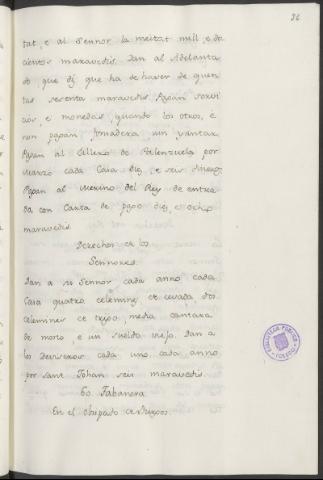 36
tat, e al Sennor la meitat mill, e do
cientos maravedis. Dan al Adelanta
do que dis que ha de haver de quen
tas sesenta maravedis. Pagan servi
cios e monedas quando los otros, e
non pagan fonsadera nin yantar.
Pagan al Cellero de Palenzuela por
Marzo cada Casa dies, e seis dineros.
Pagan al Merino del Rey de entra
da con Carta de pago dies, e ocho
maravedis.
Derechos de los
Sennores.
Dan a su Sennor cada anno cada
Casa quatro celemines de cevada dos
celemines de trigo, media cantara
de mosto e un sueldo viejo. Dan a
los Deviseros cada uno cada anno
por Sant Johan seis maravedis.
60 Tabanera
En el Obispado de Burgos.